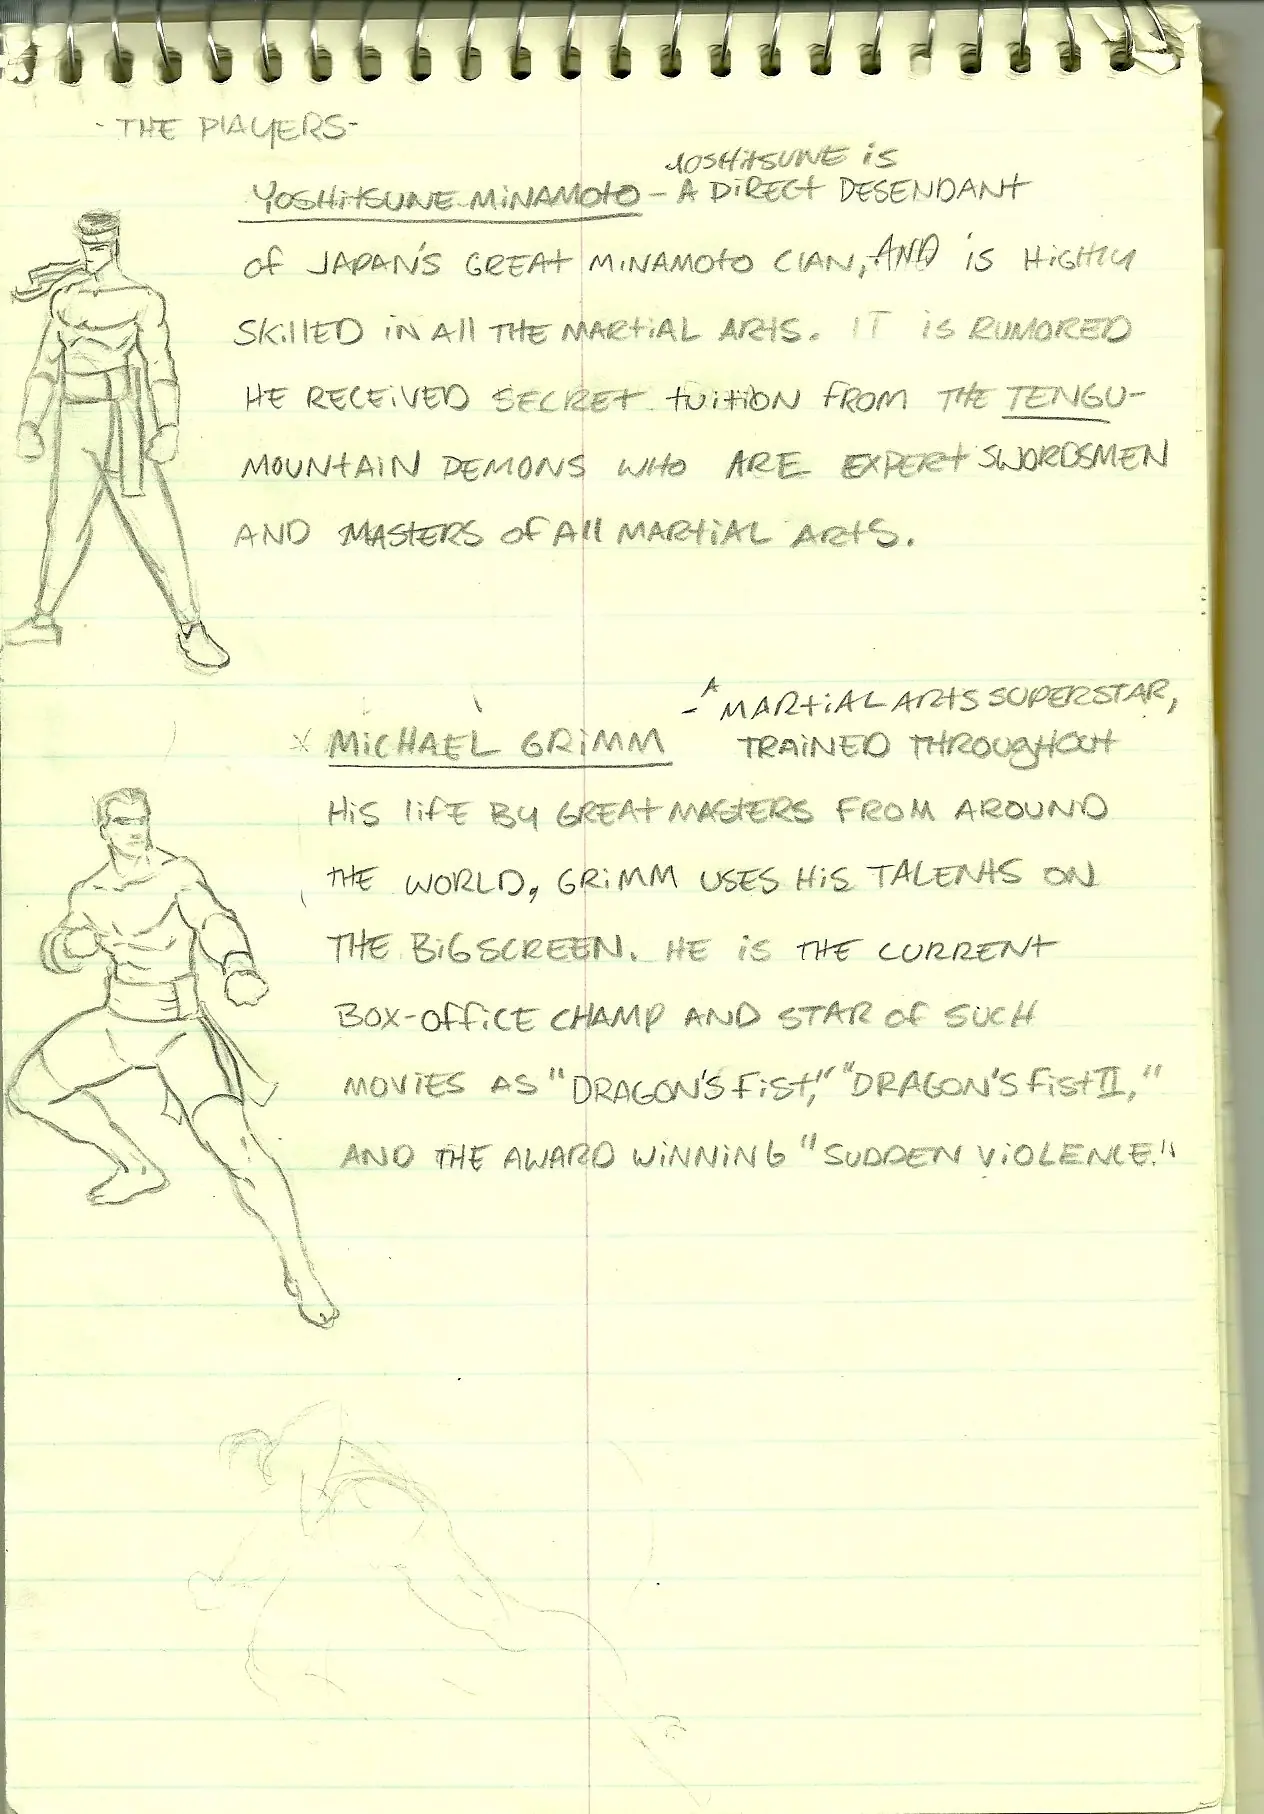 - THE PlAYERS-
YOSHitSUNE iS
YOSHitSUNE MiNAMOtO - A DiRECt DESENDANt
of JAPAN'S GREAt MiNAMOtO ClAN, AND iS HiGHlY
SKillED iN All THE MARtiAL ARtS. IT iS RUMORED
HE RECEiVED SECREt tuitiON FROM THE TENGU-
MOUNtAiN DEMONS WHO ARE EXPERt SWORDSMEN
AND MAStERS of All MARtiAL ARtS.
- A MARtiAL ARtS SUPERSTAR,
* MiCHAEL GRiMM TRAiNED THROUGHOUt
HiS lifE BY GREAt MAStERS FROM AROUND
THE WORLD, GRiMM USES HiS TALENtS ON
THE BiG SCREEN. HE iS THE CURRENt
BOX-OffiCE CHAMP AND STAR Of SUCH
MOViES AS "DRAGON'S FiSt," "DRAGON'S FiSt II,"
AND THE AWARD WiNNiNG "SUDDEN ViOLENCE."